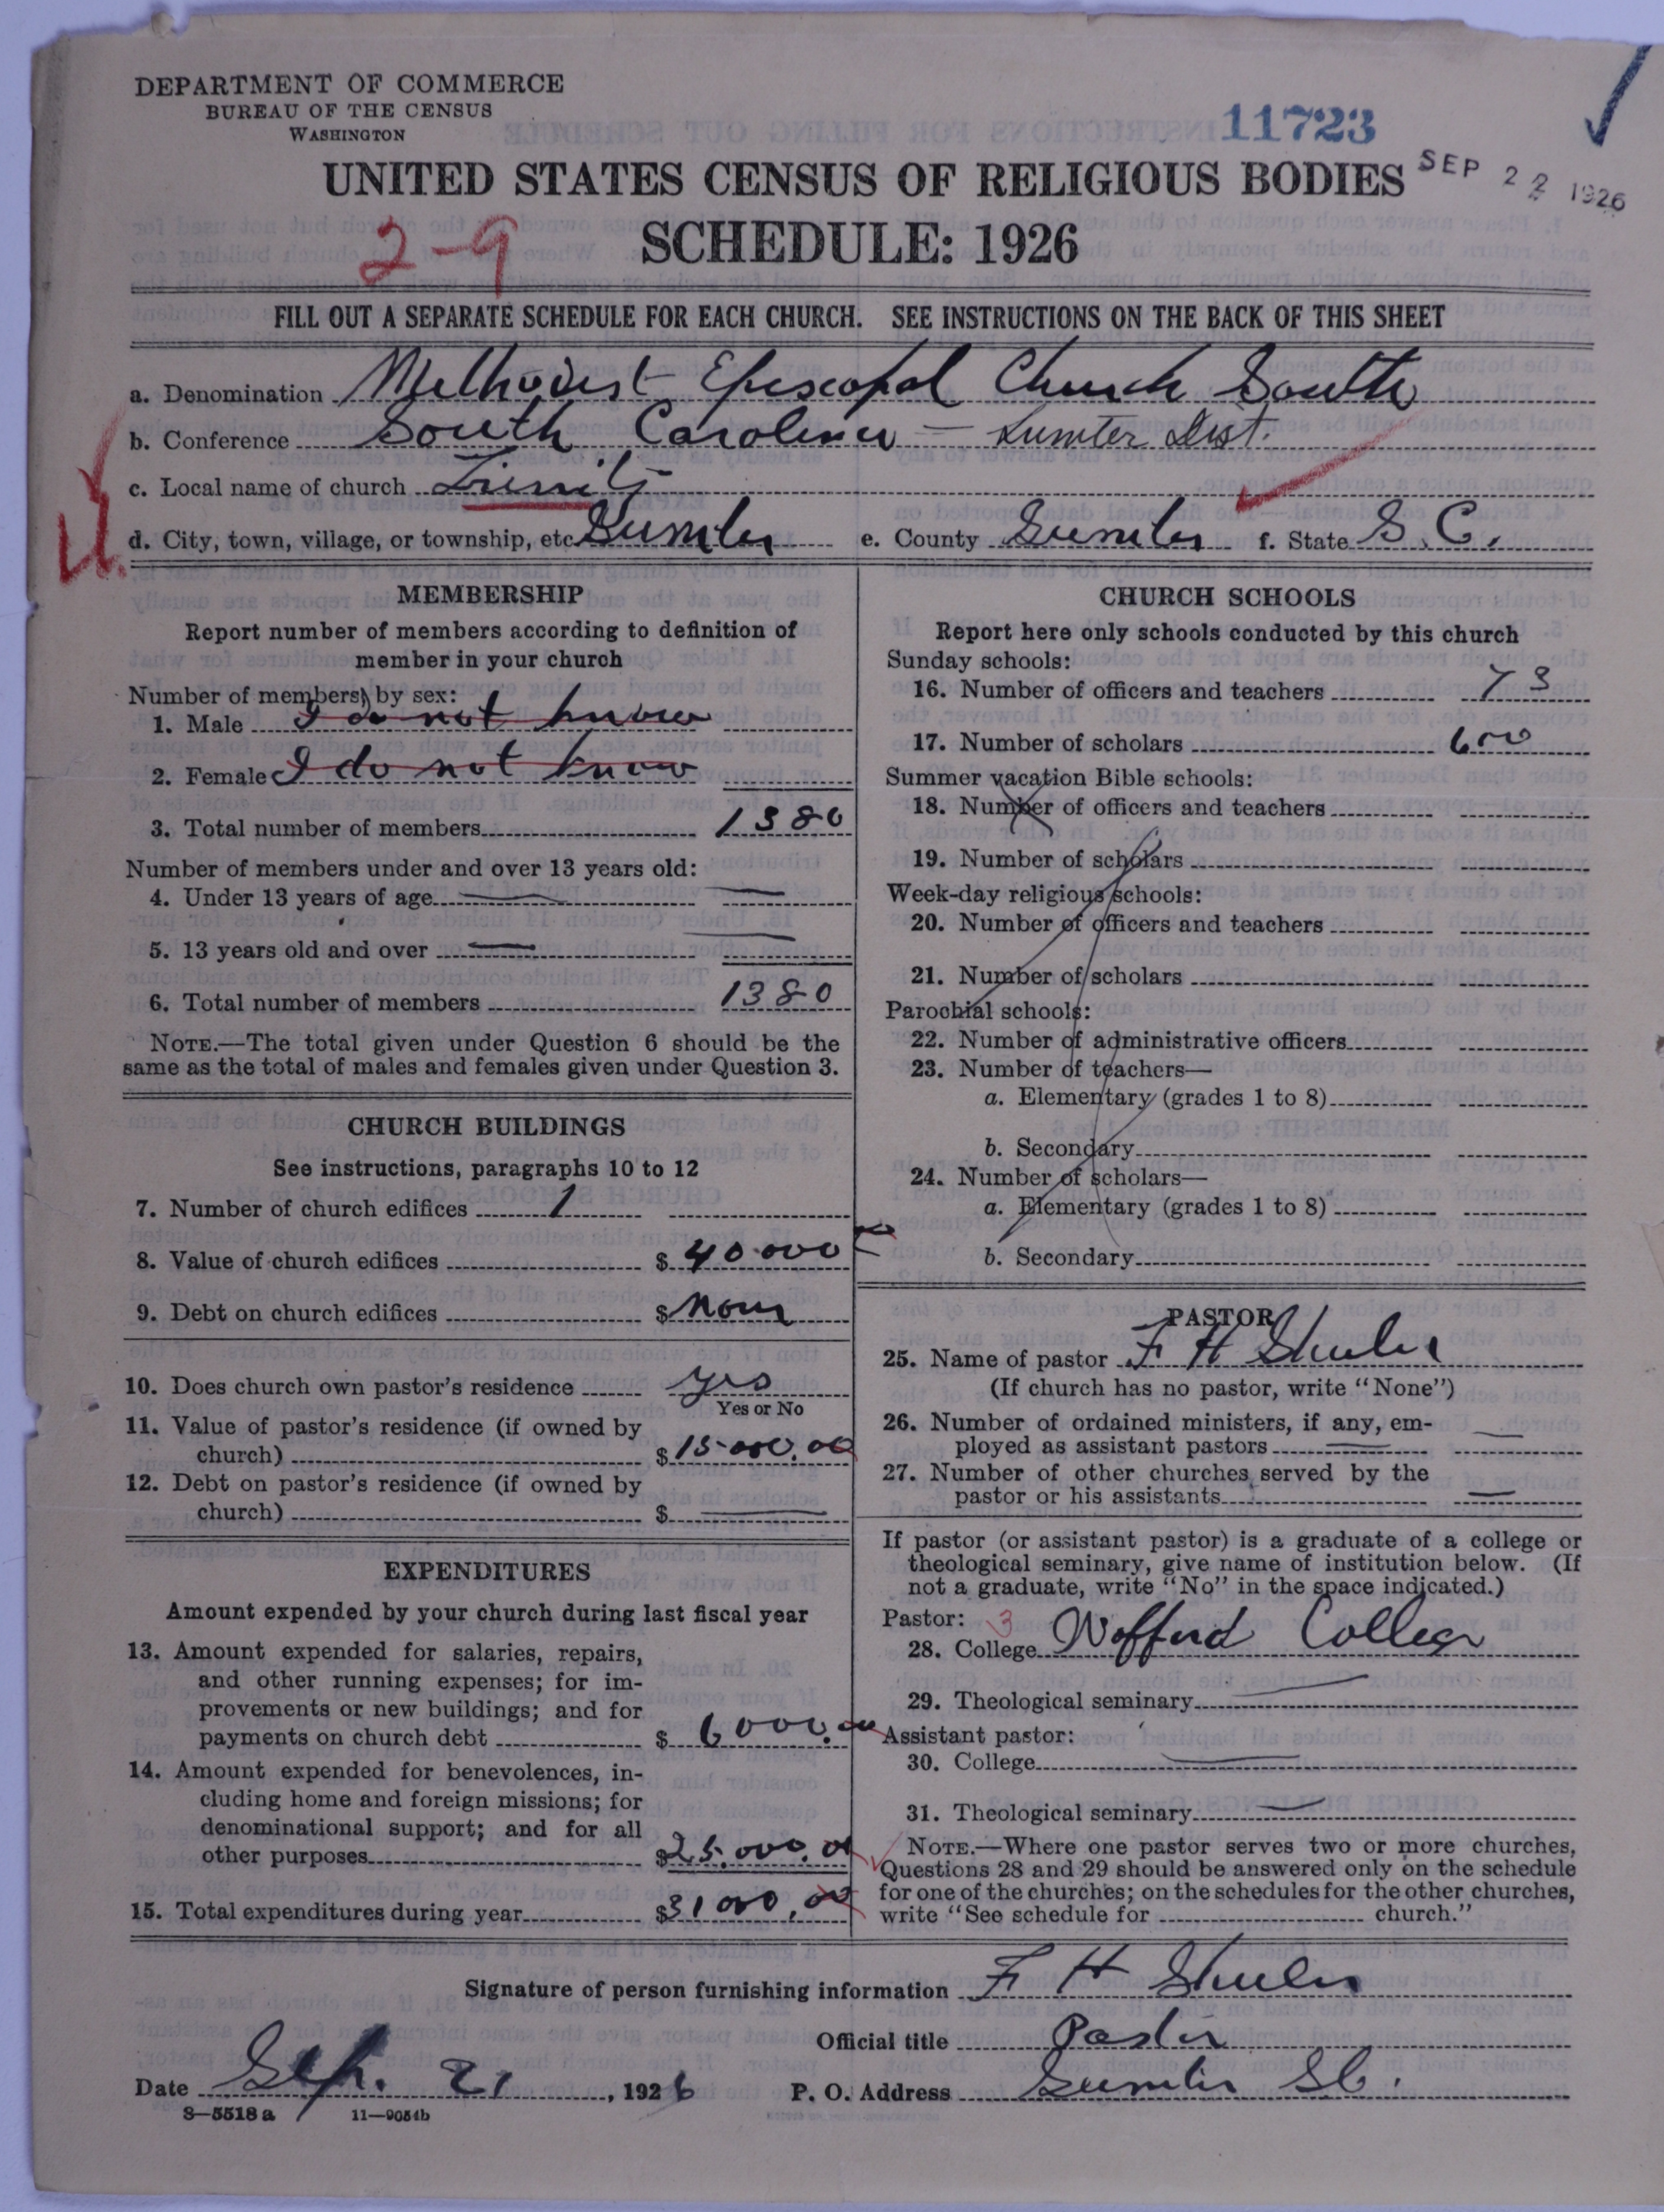 DEPARTMENT OF COMMERCE
BUREAU OF THE CENSUS
WASHINGTON
11723
SEP 22 1926
UNITED STATES CENSUS OF RELIGIOUS BODIES
2-9
SCHEDULE: 1926
FILL OUT A SEPARATE SCHEDULE FOR EACH CHURCH. SEE INSTRUCTIONS ON THE BACK OF THIS SHEET
a. Denomination Methodist Episcopal Church South
b. Conference South Carolina — Sumter Dist.
c. Local name of church Trinity
d. City, town, village, or township, etc. Sumter e. County Sumter f. State S.C.
MEMBERSHIP
Report number of members according to definition of
member in your church
Number of members, by sex:
1. Male I do not know
2. Female I do not know
3. Total number of members 1380
Number of members under and over 13 years old:
4. Under 13 years of age —
5. 13 years old and over —
6. Total number of members 1380
NOTE.—The total given under Question 6 should be the
same as the total of males and females given under Question 3.
CHURCH BUILDINGS
See instructions, paragraphs 10 to 12
7. Number of church edifices 1
8. Value of church edifices $ 40.000
9. Debt on church edifices $ None
10. Does church own pastor's residence yes
Yes or No
11. Value of pastor's residence (if owned by
church) $ 15.000.00
12. Debt on pastor's residence (if owned by
church) $ —
EXPENDITURES
Amount expended by your church during last fiscal year
13. Amount expended for salaries, repairs,
and other running expenses; for im-
provements or new buildings; and for
payments on church debt $ 6000.00
14. Amount expended for benevolences, in-
cluding home and foreign missions; for
denominational support; and for all
other purposes $ 25.000.00
15. Total expenditures during year $ 31000.00
CHURCH SCHOOLS
Report here only schools conducted by this church
Sunday schools:
16. Number of officers and teachers 73
17. Number of scholars 600
Summer vacation Bible schools:
18. Number of officers and teachers
19. Number of scholars
Week-day religious schools:
20. Number of officers and teachers
21. Number of scholars
Parochial schools:
22. Number of administrative officers
23. Number of teachers—
a. Elementary (grades 1 to 8)
b. Secondary
24. Number of scholars—
a. Elementary (grades 1 to 8)
b. Secondary
PASTOR
25. Name of pastor F H Shuler
(If church has no pastor, write "None")
26. Number of ordained ministers, if any, em-
ployed as assistant pastors —
27. Number of other churches served by the
pastor or his assistants —
If pastor (or assistant pastor) is a graduate of a college or
theological seminary, give name of institution below. (If
not a graduate, write "No" in the space indicated.)
Pastor: 3
28. College Wofford College
29. Theological seminary —
Assistant pastor:
30. College —
31. Theological seminary —
NOTE.—Where one pastor serves two or more churches,
Questions 28 and 29 should be answered only on the schedule
for one of the churches; on the schedules for the other churches,
write "See schedule for church."
Signature of person furnishing information F H Shuler
Official title Pastor
Date Sep. 21, 1926 P. O. Address Sumter SC.
8—5518a 11—9051b